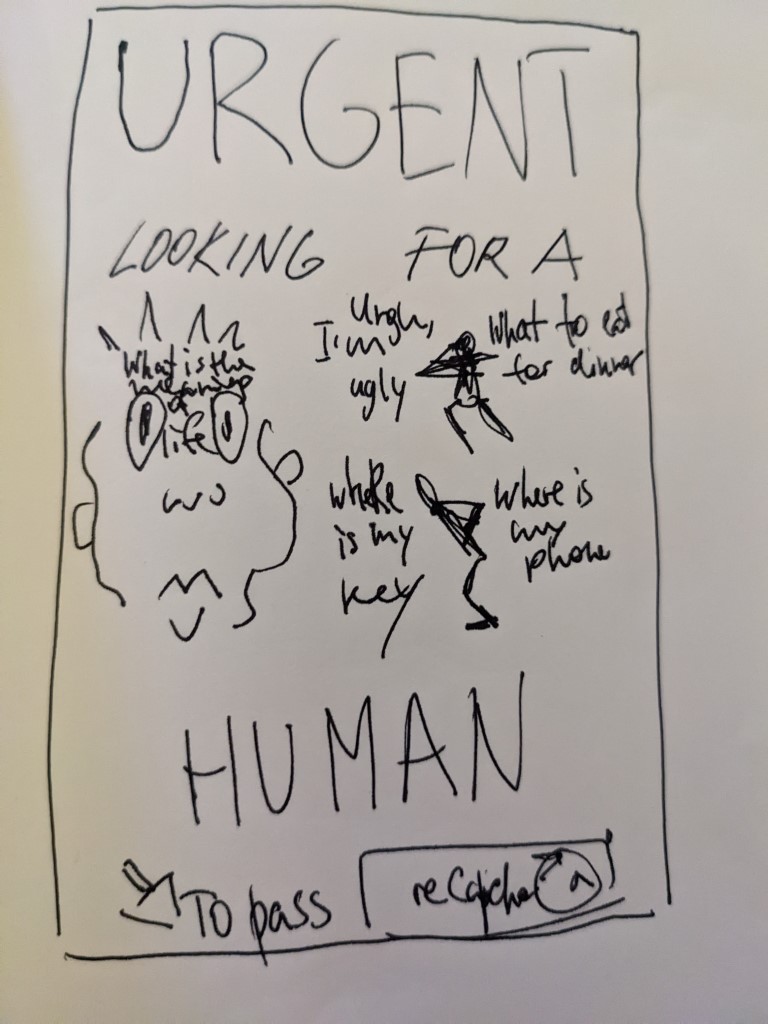 URGENT
LOOKING FOR A
What is the
meaning
of
life
Urgh,
I'm
ugly
What to eat
for dinner
where
is my
key
Where is
my
phone
HUMAN
To pass
recapcha